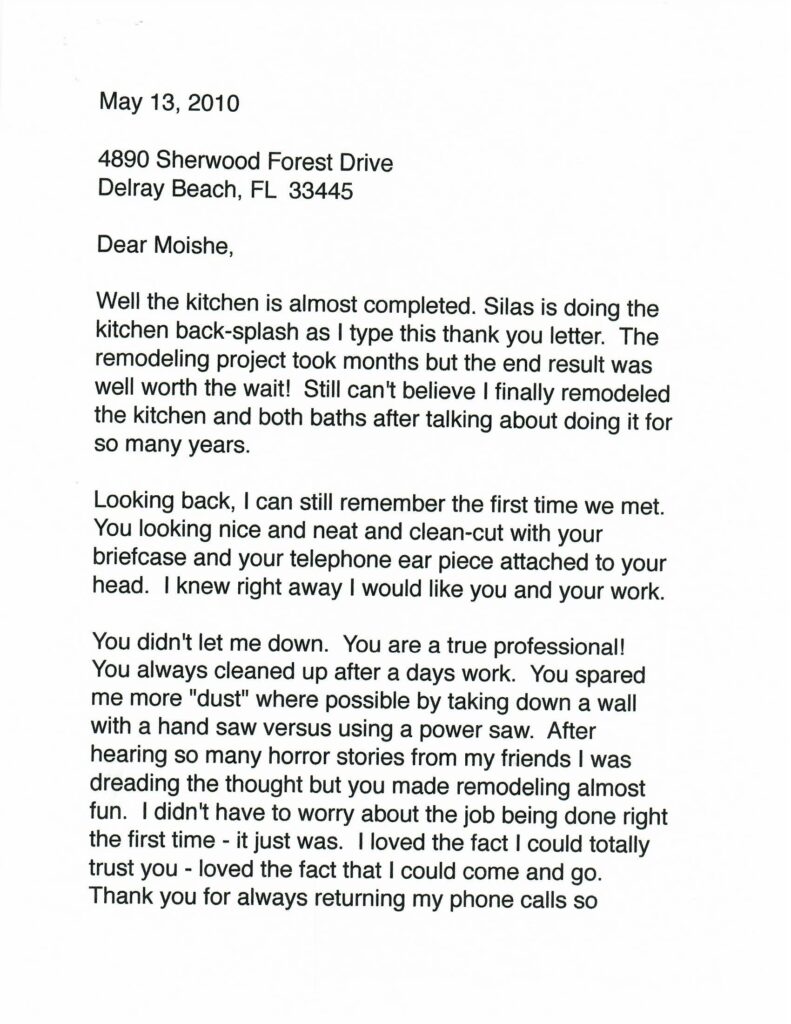 May 13, 2010
4890 Sherwood Forest Drive
Delray Beach, FL  33445
Dear Moishe,
Well the kitchen is almost completed. Silas is doing the
kitchen back-splash as I type this thank you letter.  The
remodeling project took months but the end result was
well worth the wait!  Still can't believe I finally remodeled
the kitchen and both baths after talking about doing it for
so many years.
Looking back, I can still remember the first time we met.
You looking nice and neat and clean-cut with your
briefcase and your telephone ear piece attached to your
head.  I knew right away I would like you and your work.
You didn't let me down.  You are a true professional!
You always cleaned up after a days work.  You spared
me more "dust" where possible by taking down a wall
with a hand saw versus using a power saw.  After
hearing so many horror stories from my friends I was
dreading the thought but you made remodeling almost
fun.  I didn't have to worry about the job being done right
the first time - it just was.  I loved the fact I could totally
trust you - loved the fact that I could come and go.
Thank you for always returning my phone calls so